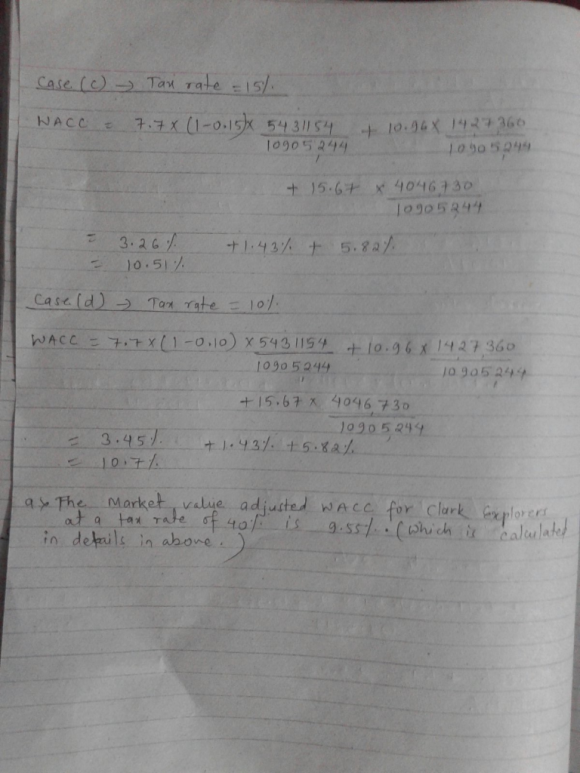 Case (c) → Tax rate = 15%
WACC = 7.7 × (1-0.15) × 5431154 + 10.96 × 1427360
10905244 10905244
+ 15.67 × 4046730
10905244
= 3.26% + 1.43% + 5.82%
= 10.51%
Case (d) → Tax rate = 10%
WACC = 7.7 × (1-0.10) × 5431154 + 10.96 × 1427360
10905244 10905244
+ 15.67 × 4046730
10905244
= 3.45% + 1.43% + 5.82%
= 10.7%
a> The Market value adjusted WACC for Clark Explorers
at a tax rate of 40% is 9.55%. (which is calculated
in details in above.)